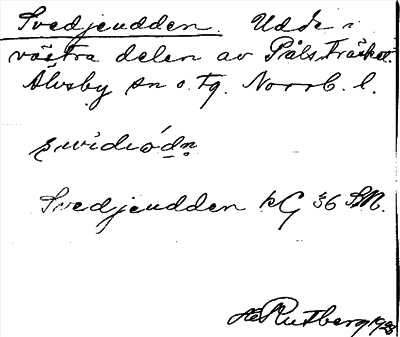 Svedjeudden. Udde i
västra delen av Pålsträsket.
Älvsby sn o. tg. Norrb. l.
Svedjeudden kG 36 SM.
HRutberg 1928